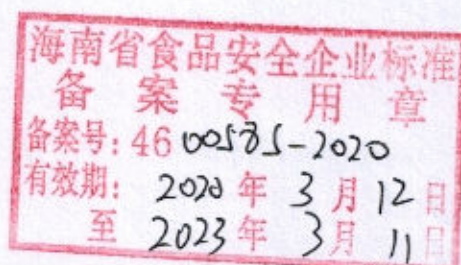 海南省食品安全企业标准
备案专用章
备案号: 46 00585-2020
有效期: 2020 年 3 月 12 日
至 2023 年 3 月 11 日